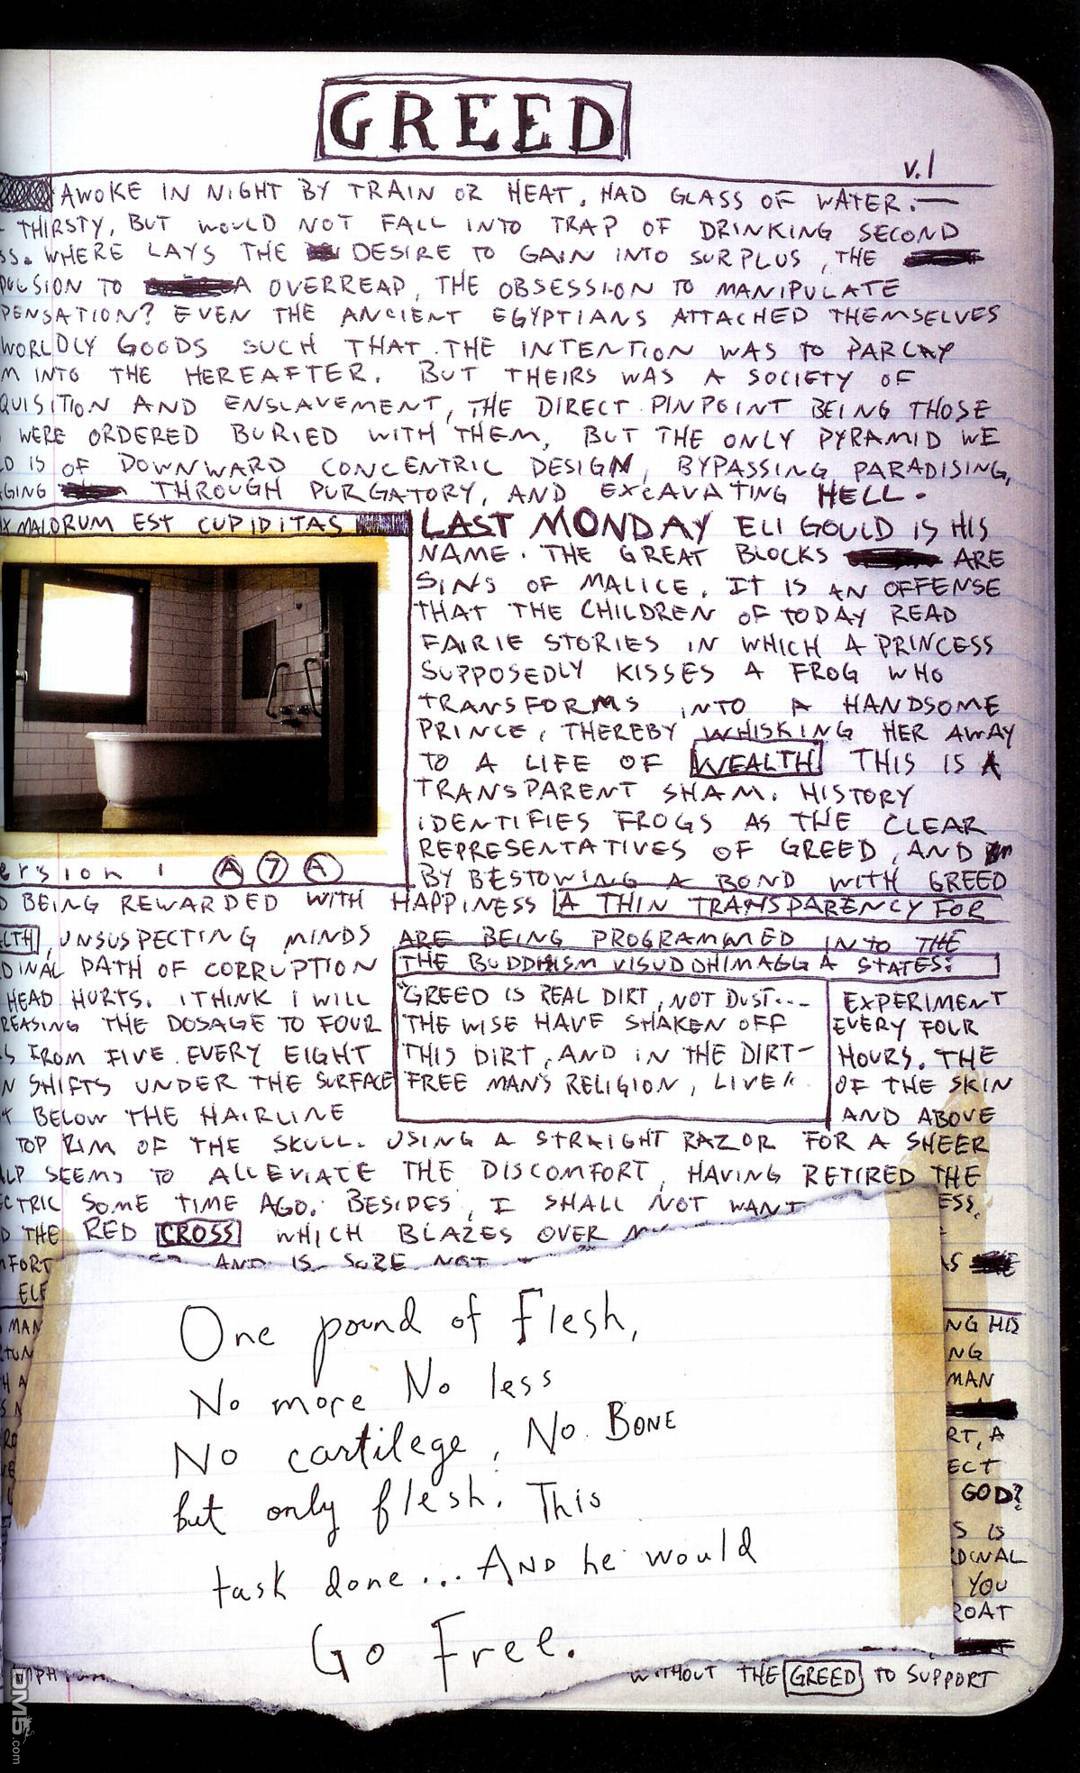 GREED
v.1
AWOKE IN NIGHT BY TRAIN OR HEAT. HAD GLASS OF WATER.—
THIRSTY, BUT WOULD NOT FALL INTO TRAP OF DRINKING SECOND
SS. WHERE LAYS THE DESIRE TO GAIN INTO SURPLUS, THE
PULSION TO A OVERREAP, THE OBSESSION TO MANIPULATE
PENSATION? EVEN THE ANCIENT EGYPTIANS ATTACHED THEMSELVES
WORLDLY GOODS SUCH THAT THE INTENTION WAS TO PARLAY
M INTO THE HEREAFTER. BUT THEIRS WAS A SOCIETY OF
QUISITION AND ENSLAVEMENT, THE DIRECT PINPOINT BEING THOSE
WERE ORDERED BURIED WITH THEM, BUT THE ONLY PYRAMID WE
LD IS OF DOWNWARD CONCENTRIC DESIGN, BYPASSING PARADISING,
AGING THROUGH PURGATORY, AND EXCAVATING HELL.
X MALORUM EST CUPIDITAS
LAST MONDAY ELI GOULD IS HIS
NAME. THE GREAT BLOCKS ARE
SINS OF MALICE. IT IS AN OFFENSE
THAT THE CHILDREN OF TODAY READ
FAIRIE STORIES IN WHICH A PRINCESS
SUPPOSEDLY KISSES A FROG WHO
TRANSFORMS INTO A HANDSOME
PRINCE, THEREBY WHISKING HER AWAY
TO A LIFE OF WEALTH THIS IS A
TRANSPARENT SHAM. HISTORY
IDENTIFIES FROGS AS THE CLEAR
REPRESENTATIVES OF GREED, AND
BY BESTOWING A BOND WITH GREED
ersion 1 A 7 A
D BEING REWARDED WITH HAPPINESS A THIN TRANSPARENCY FOR
LTH, UNSUSPECTING MINDS ARE BEING PROGRAMMED INTO THE
DINAL PATH OF CORRUPTION
THE BUDDHISM VISUDDHIMAGGA STATES:
"GREED IS REAL DIRT, NOT DUST...
THE WISE HAVE SHAKEN OFF
THIS DIRT, AND IN THE DIRT-
FREE MAN'S RELIGION, LIVE"
HEAD HURTS. I THINK I WILL EXPERIMENT
REASING THE DOSAGE TO FOUR EVERY FOUR
S FROM FIVE EVERY EIGHT HOURS. THE
N SHIFTS UNDER THE SURFACE OF THE SKIN
T BELOW THE HAIRLINE AND ABOVE
TOP RIM OF THE SKULL. USING A STRAIGHT RAZOR FOR A SHEER
LP SEEMS TO ALLEVIATE THE DISCOMFORT, HAVING RETIRED THE
CTRIC SOME TIME AGO. BESIDES, I SHALL NOT WANT ESS,
D THE RED CROSS WHICH BLAZES OVER
MFORT AND IS SURE NOT AS
ELF
One pound of Flesh,
No more No less
No cartilege, No BONE
but only flesh. This
task done... AND he would
Go Free.
MAN
NG HIS
NG
MAN
RT, A
ECT
GOD?
S IS
RDINAL
YOU
ROAT
WITHOUT THE GREED TO SUPPORT
DM5.com